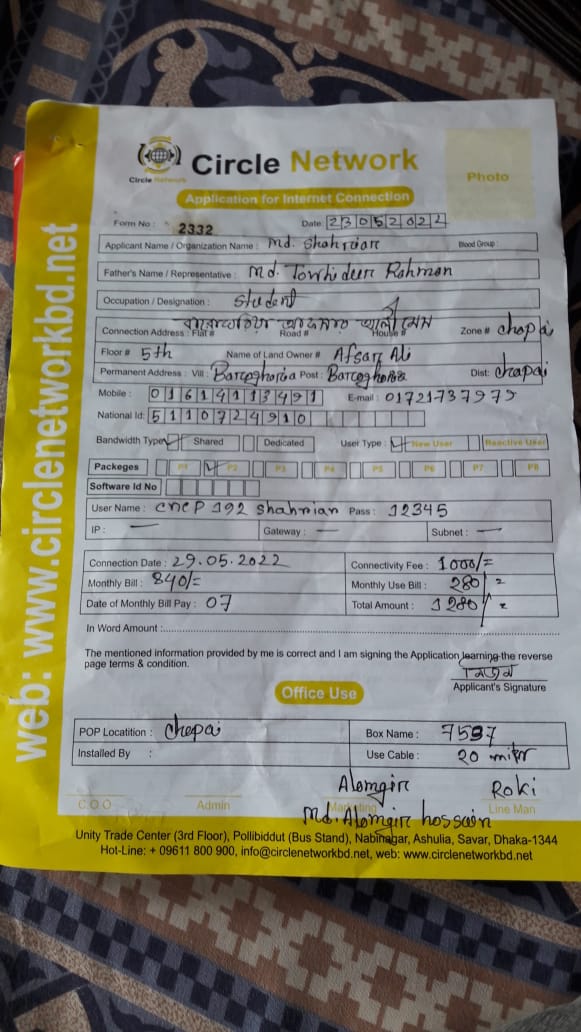 web: www.circlenetworkbd.net
Circle Network
Circle Network
Photo
Application for Internet Connection
Form No : 2332 Date 23052022
Applicant Name / Organization Name : Md. Shahriar Blood Group :
Father's Name / Representative : Md. Towhidur Rahman
Occupation / Designation : Student
Connection Address : Flat # Road # House # Zone # chapai
Floor # 5th Name of Land Owner # Afsar Ali
Permanent Address : Vill : Baroghoria Post : Baroghoria Dist: chapai
Mobile : 01641113491 E-mail : 01721737979
National Id: 5110724910
Bandwidth Type Shared Dedicated User Type : New User Reactive User
Packeges P1 P2 P3 P4 P5 P6 P7 P8
Software Id No
User Name : cnep192 shahrian Pass : 12345
IP : — Gateway : — Subnet : —
Connection Date : 29.05.2022 Connectivity Fee : 1000/=
Monthly Bill : 840/= Monthly Use Bill : 280/=
Date of Monthly Bill Pay : 07 Total Amount : 1280/=
In Word Amount :
The mentioned information provided by me is correct and I am signing the Application learning the reverse
page terms & condition.
Applicant's Signature
Office Use
POP Locatition : chapai Box Name : 7597
Installed By : Use Cable : 20 miter
Alomgir Roki
C.O.O Admin Marketing Line Man
Md. Alomgir hossain
Unity Trade Center (3rd Floor), Pollibiddut (Bus Stand), Nabinagar, Ashulia, Savar, Dhaka-1344
Hot-Line: + 09611 800 900, info@circlenetworkbd.net, web: www.circlenetworkbd.net